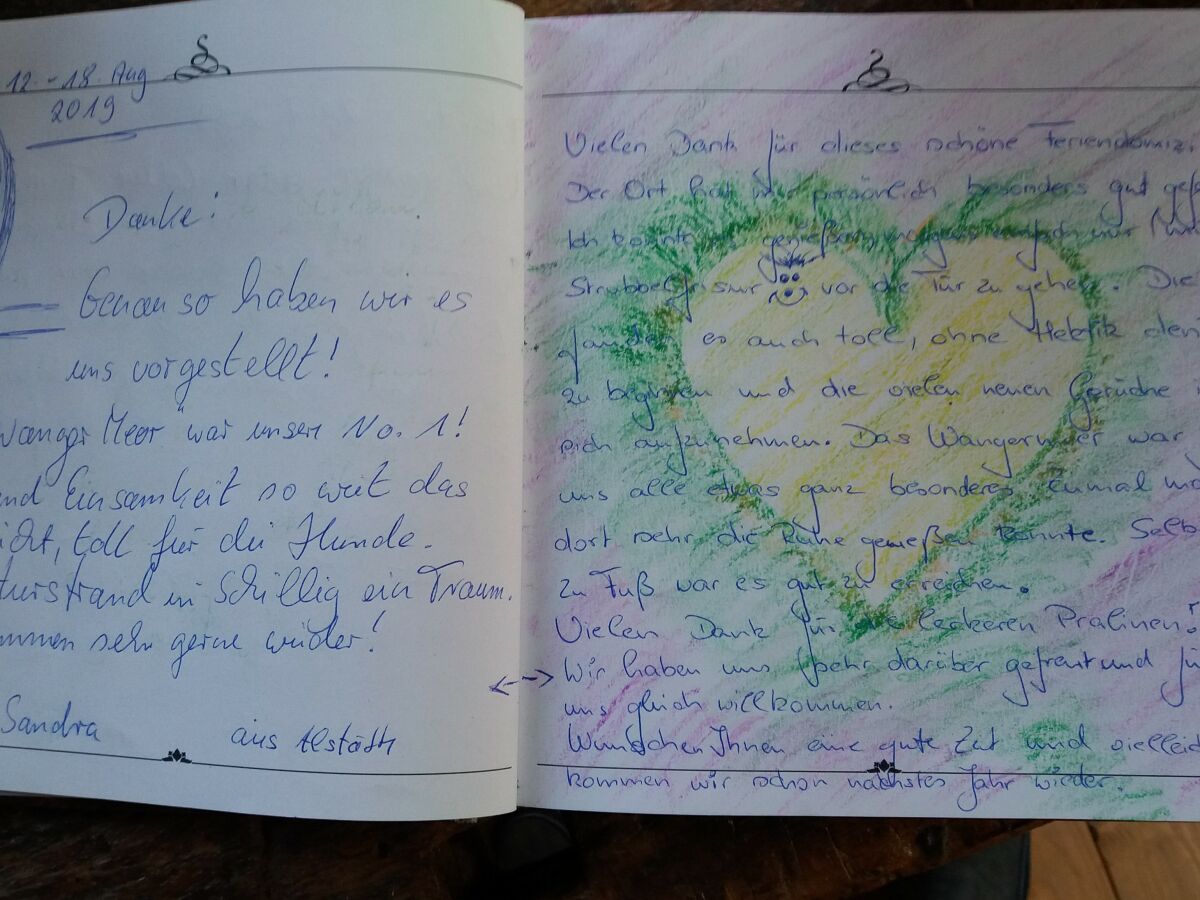 12.-18. Aug
2019
Danke!
Genau so haben wir es
uns vorgestellt!
Wanger Meer" war unsere No. 1!
und Einsamkeit so weit das
icht, toll für die Hunde.
turstrand in Schillig ein Traum.
ommen sehr gerne wieder!
Sandra aus Alstätte
Vielen Dank für dieses schöne Feriendomizi
Der Ort hat mir persönlich besonders gut gefa
Ich konnte es genießen, morgens einfach nur
Strubbelfrisur vor die Tür zu gehen. Die
fanden es auch toll, ohne Hektik den
zu beginnen und die vielen neuen Gerüche
sich aufzunehmen. Das Wangermeer war
uns alle etwas ganz besonderes, einmal
dort sehr die Ruhe genießen konnte. Selb
zu Fuß war es gut zu erreichen.
Vielen Dank für die leckeren Pralinen!
Wir haben uns sehr darüber gefreut und fü
uns gleich willkommen.
Wünschen Ihnen eine gute Zeit und vielleic
kommen wir schon nächstes Jahr wieder.